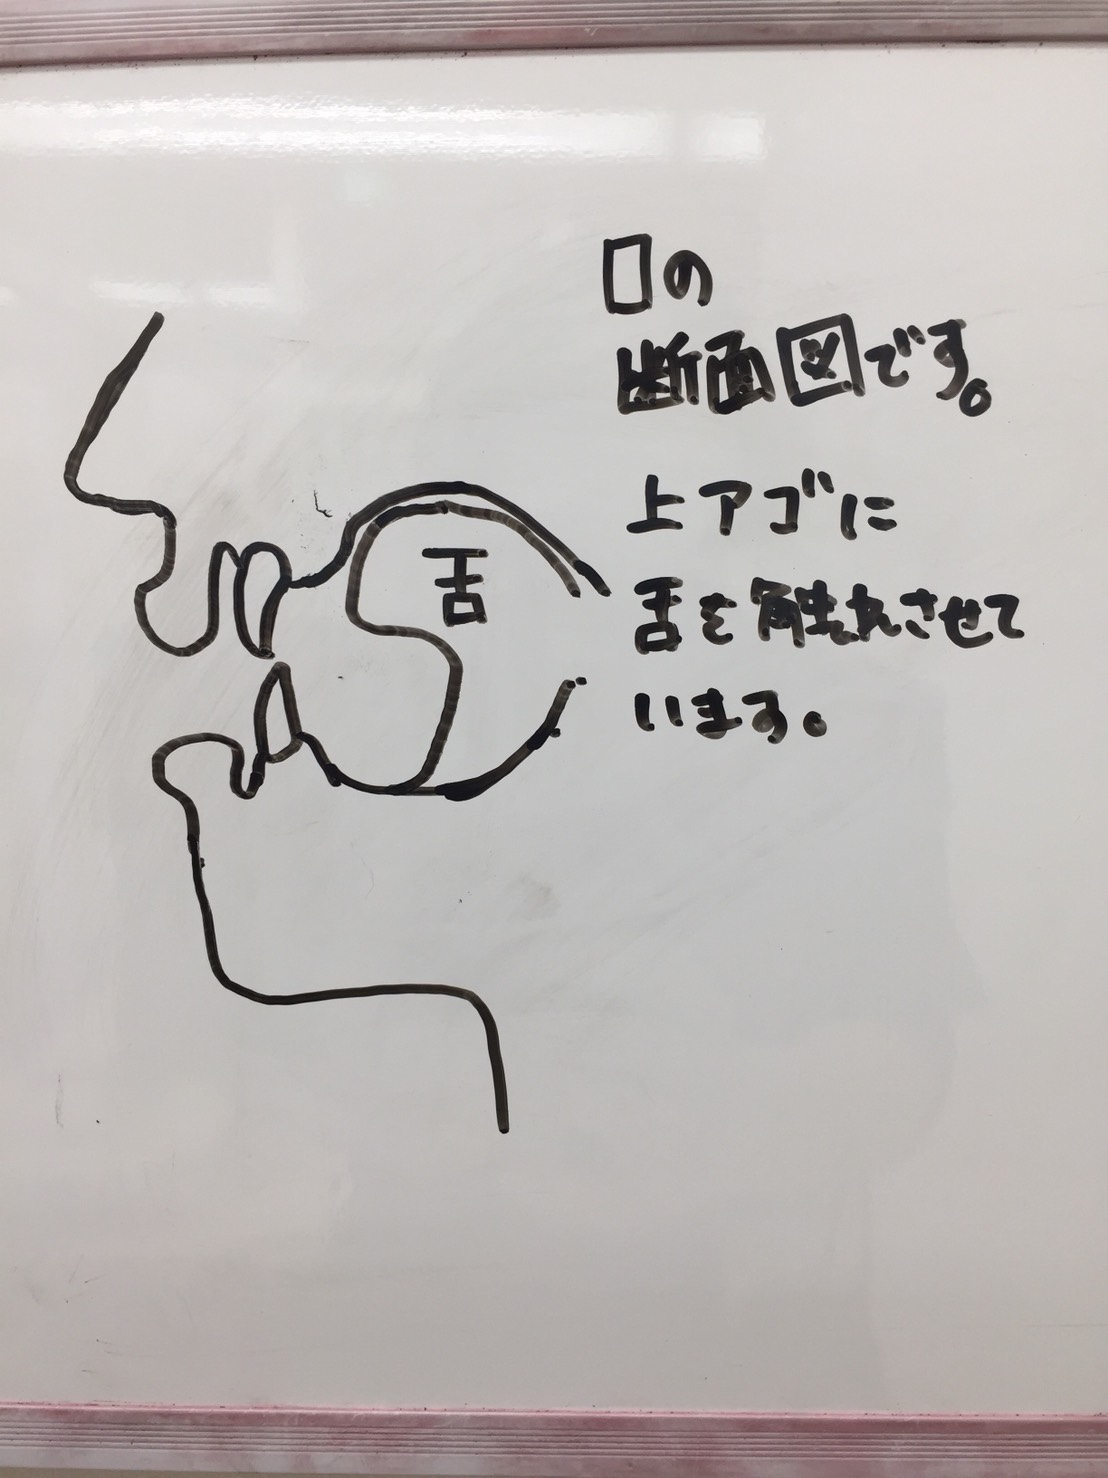 舌
口の
断面図です。
上アゴに
舌を触れさせて
います。